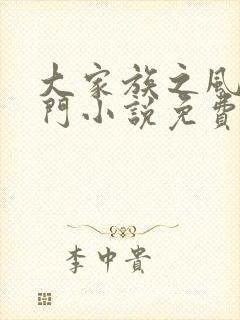 大家族之風
門小說免費
李中貴